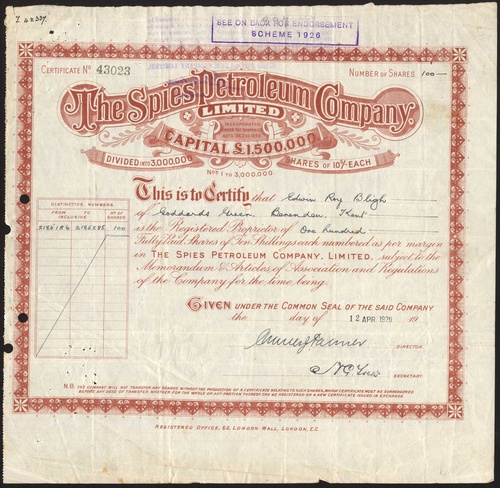 SEE ON BACK FOR ENDORSEMENT
SCHEME 1926
CERTIFICATE No 43023
NUMBER OF SHARES 100
The Spies Petroleum Company.
LIMITED
CAPITAL £1,500,000
DIVIDED INTO 3,000,000 SHARES OF 10/- EACH
Nos 1 TO 3,000,000
This is to Certify that Edwin Roy Bligh
of Goddards Green, Benenden, Kent
is the Registered Proprietor of One hundred
Fully Paid Shares of Ten Shillings each numbered as per margin
in THE SPIES PETROLEUM COMPANY, LIMITED, subject to the
Memorandum & Articles of Association and Regulations
of the Company for the time being.
DISTINCTIVE NUMBERS.
FROM TO INCLUSIVE No OF SHARES
100
GIVEN UNDER THE COMMON SEAL OF THE SAID COMPANY
the day of 12 APR. 1920 19
DIRECTOR
SECRETARY
N.B. THE COMPANY WILL NOT TRANSFER ANY SHARES WITHOUT THE PRODUCTION OF A CERTIFICATE RELATING TO SUCH SHARES, WHICH CERTIFICATE MUST BE SURRENDERED
BEFORE ANY DEED OF TRANSFER, WHETHER FOR THE WHOLE OR ANY PORTION THEREOF, CAN BE REGISTERED OR A NEW CERTIFICATE ISSUED IN EXCHANGE.
REGISTERED OFFICE, 62, LONDON WALL, LONDON, E.C.